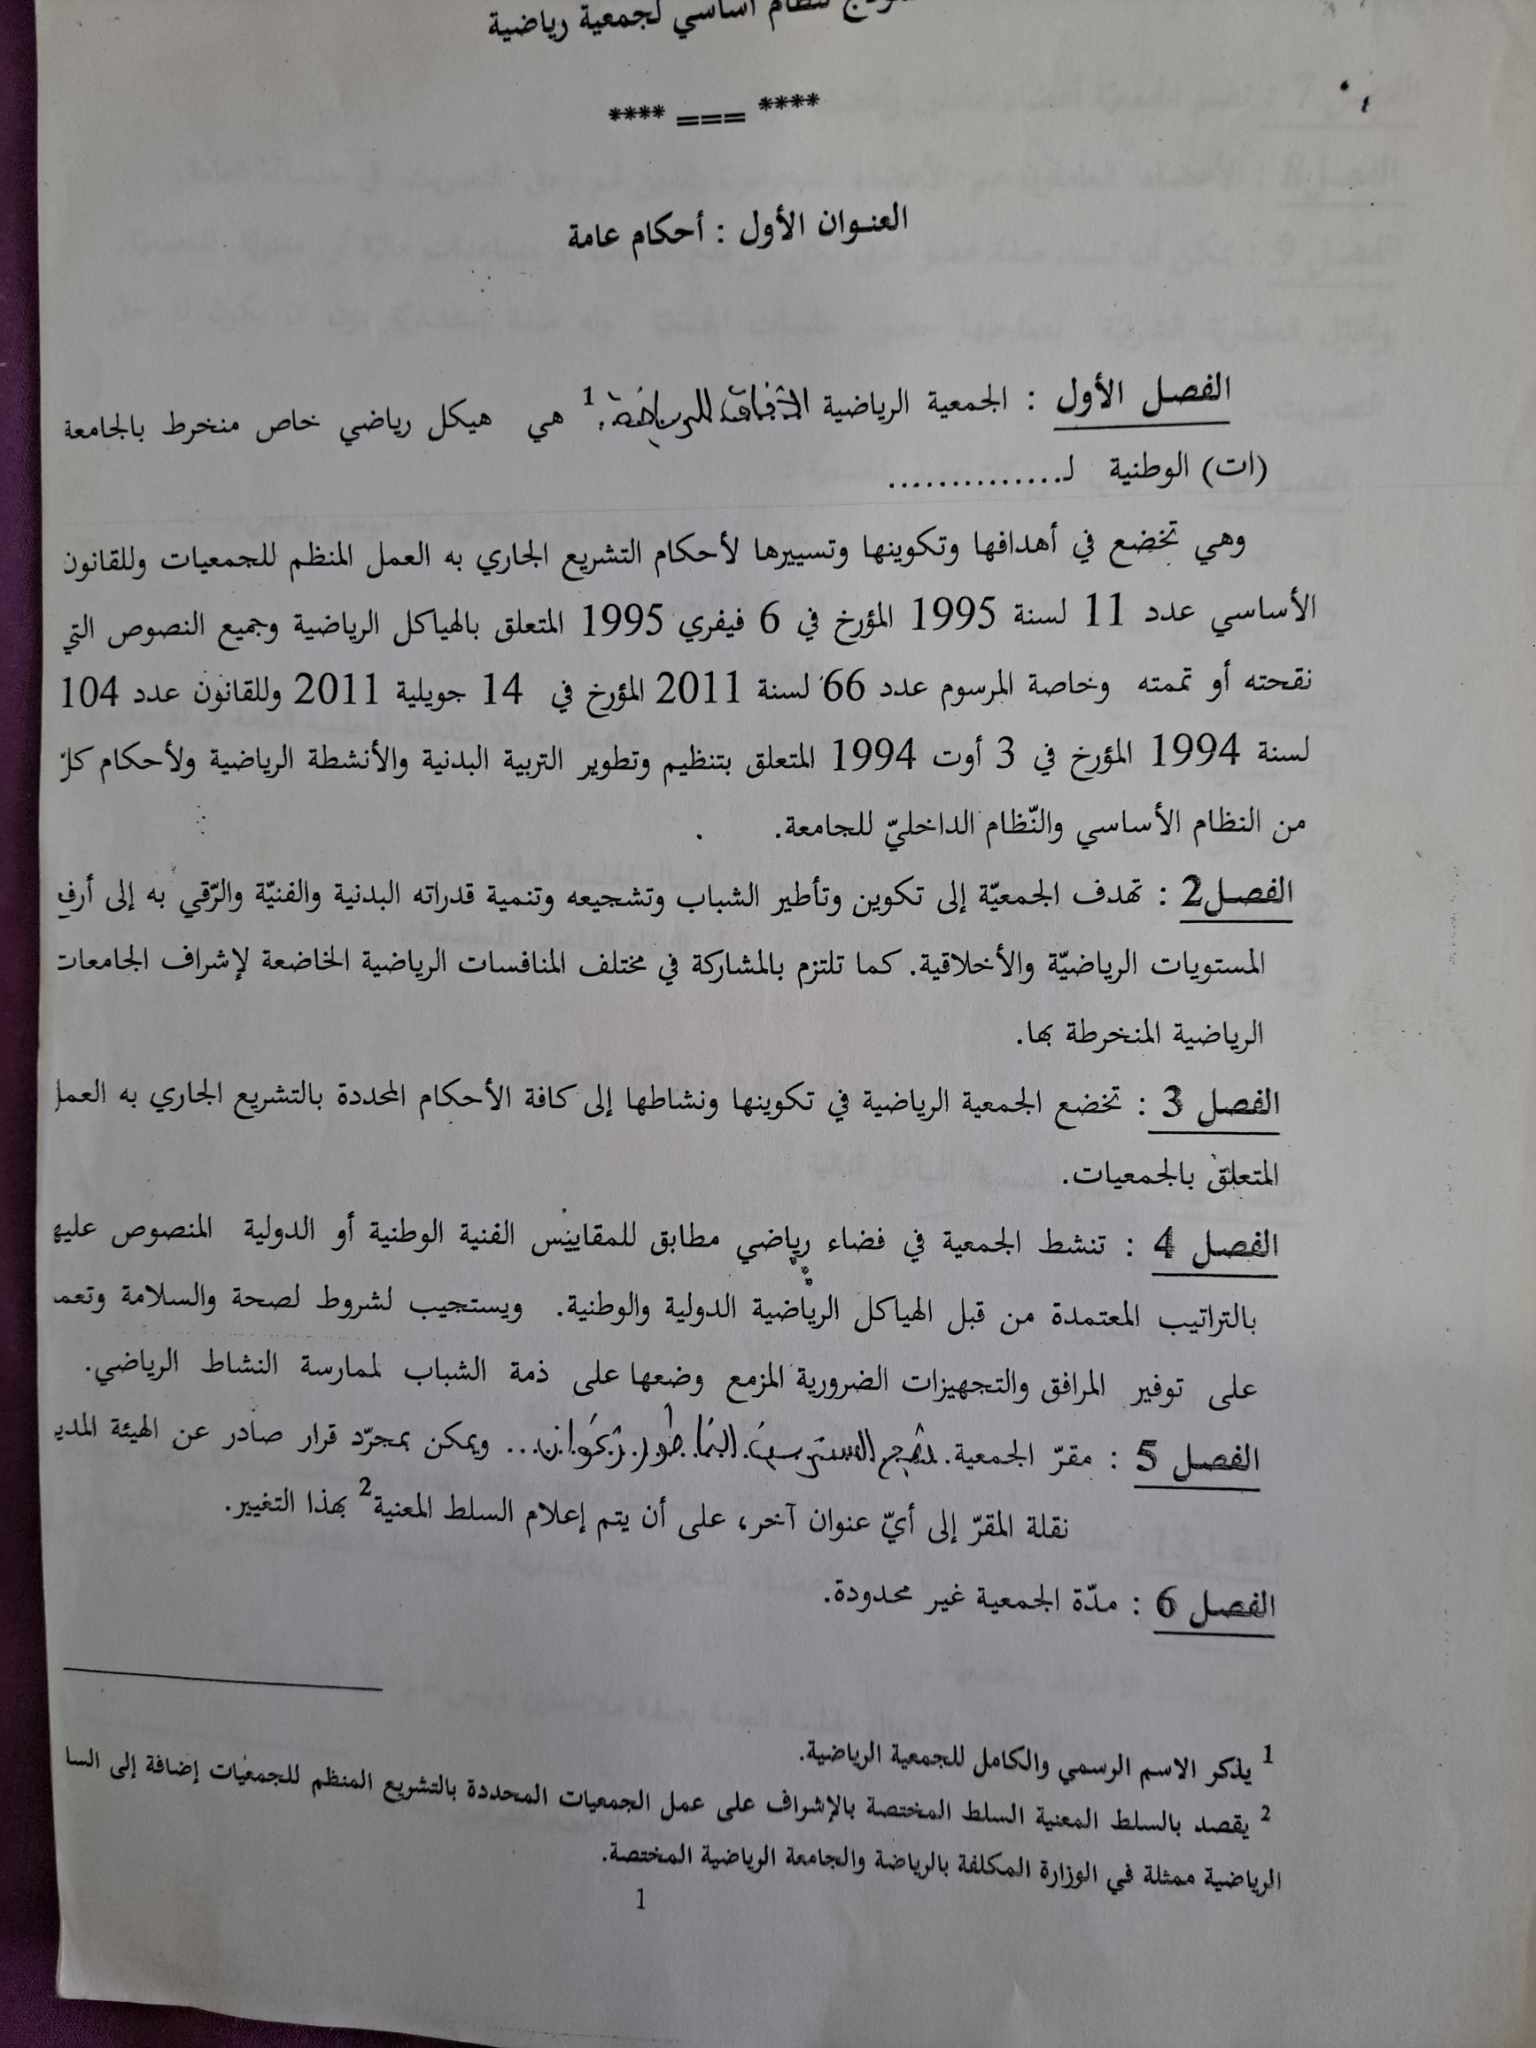 لنظام أساسي لجمعية رياضية
**** === ****
العنوان الأول : أحكام عامة
الفصل الأول : الجمعية الرياضية الآفاق للرياضة. 1 هي هيكل رياضي خاص منخرط بالجامعة
(ات) الوطنية لـ..............
وهي تخضع في أهدافها وتكوينها وتسييرها لأحكام التشريع الجاري به العمل المنظم للجمعيات وللقانون
الأساسي عدد 11 لسنة 1995 المؤرخ في 6 فيفري 1995 المتعلق بالهياكل الرياضية وجميع النصوص التي
نقحته أو تممته وخاصة المرسوم عدد 66 لسنة 2011 المؤرخ في 14 جويلية 2011 وللقانون عدد 104
لسنة 1994 المؤرخ في 3 أوت 1994 المتعلق بتنظيم وتطوير التربية البدنية والأنشطة الرياضية ولأحكام كلّ
من النظام الأساسي والنّظام الداخليّ للجامعة.
الفصل2 : تهدف الجمعيّة إلى تكوين وتأطير الشباب وتشجيعه وتنمية قدراته البدنية والفنيّة والرّقي به إلى أرفع
المستويات الرياضيّة والأخلاقية. كما تلتزم بالمشاركة في مختلف المنافسات الرياضية الخاضعة لإشراف الجامعات
الرياضية المنخرطة بها.
الفصل 3 : تخضع الجمعية الرياضية في تكوينها ونشاطها إلى كافة الأحكام المحددة بالتشريع الجاري به العمل
المتعلق بالجمعيات.
الفصل 4 : تنشط الجمعية في فضاء رياضي مطابق للمقاييس الفنية الوطنية أو الدولية المنصوص عليها
بالتراتيب المعتمدة من قبل الهياكل الرياضية الدولية والوطنية. ويستجيب لشروط لصحة والسلامة وتعمد
على توفير المرافق والتجهيزات الضرورية المزمع وضعها على ذمة الشباب لممارسة النشاط الرياضي.
الفصل 5 : مقرّ الجمعية. نهج ... ويمكن بمجرّد قرار صادر عن الهيئة المدي
نقلة المقرّ إلى أيّ عنوان آخر، على أن يتم إعلام السلط المعنية2 بهذا التغيير.
الفصل 6 : مدّة الجمعية غير محدودة.
1 يذكر الاسم الرسمي والكامل للجمعية الرياضية.
2 يقصد بالسلط المعنية السلط المختصة بالإشراف على عمل الجمعيات المحددة بالتشريع المنظم للجمعيات إضافة إلى السا
الرياضية ممثلة في الوزارة المكلفة بالرياضة والجامعة الرياضية المختصة.
1